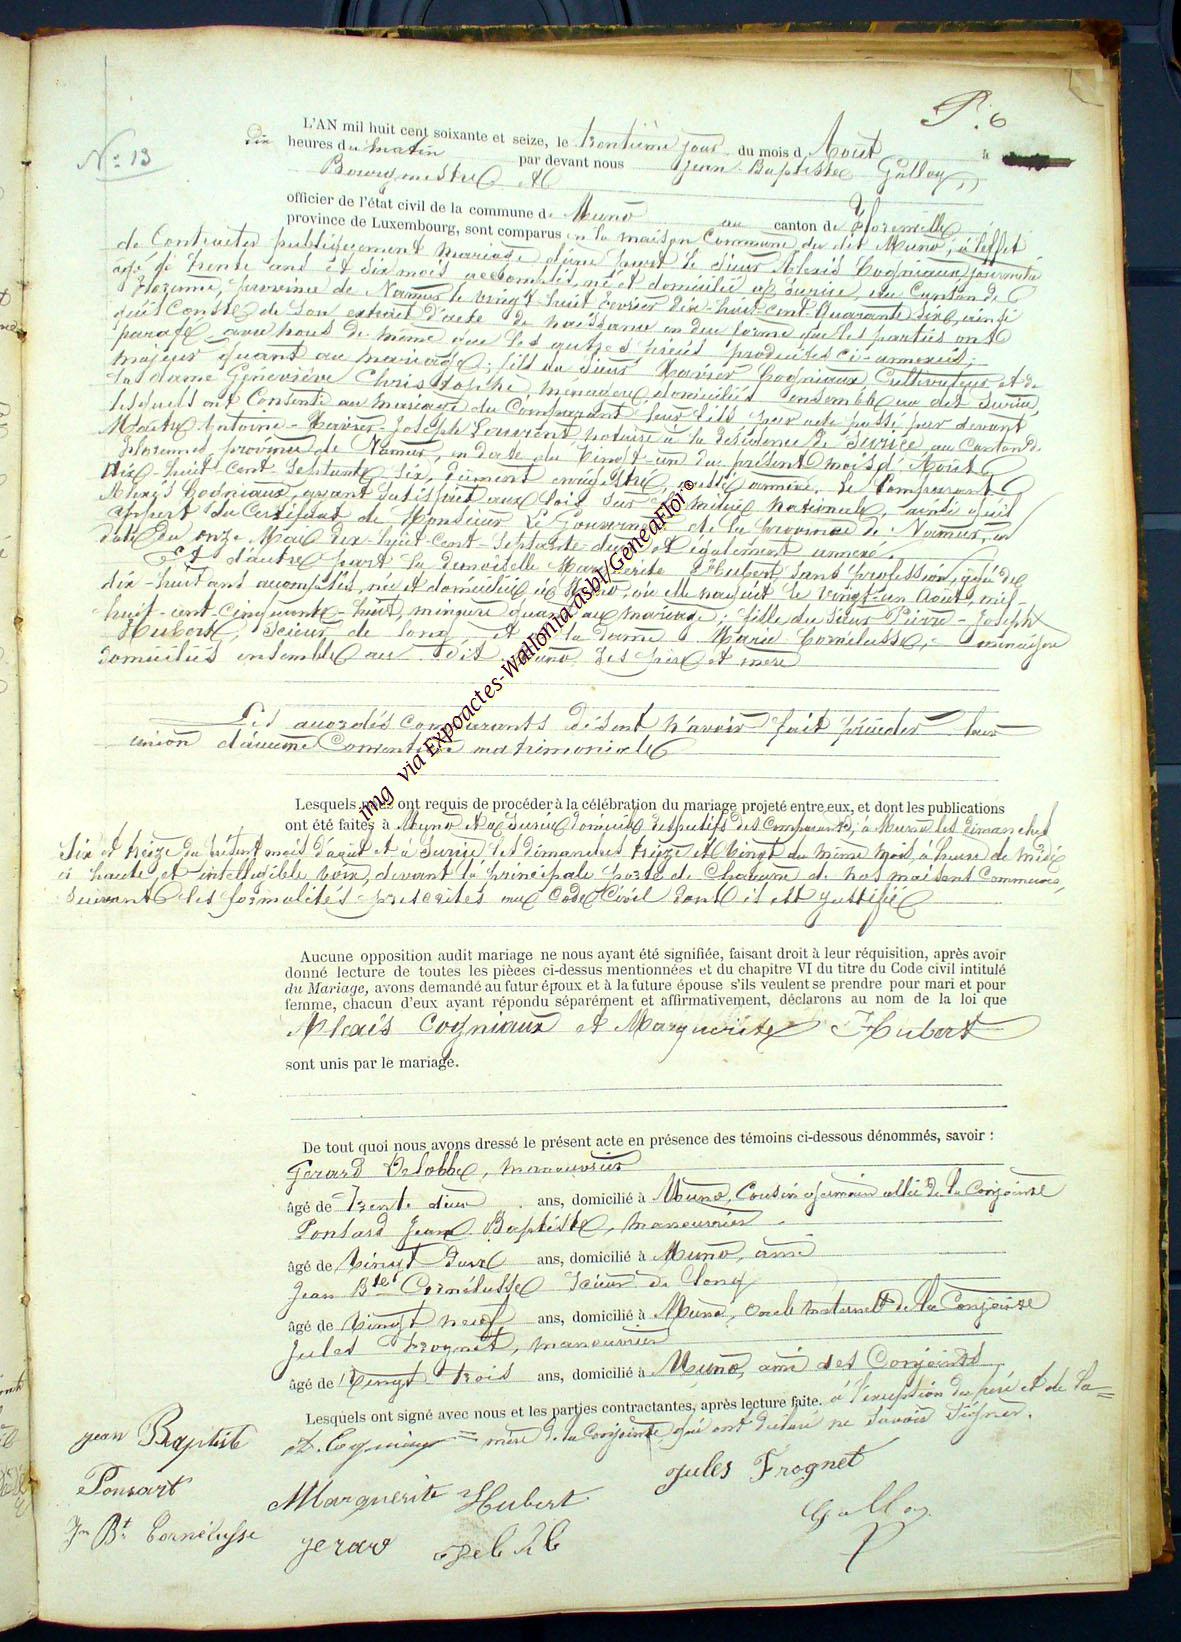 P. 6
N° 13
L'AN mil huit cent soixante et seize, le trentième jour du mois d'Août à
dix heures du matin par devant nous Jean Baptiste Galloy,
Bourgmestre
officier de l'état civil de la commune de Muno au canton de Florenville
province de Luxembourg, sont comparus en la maison Commune du dit Muno, à l'effet
de Contracter publiquement mariage d'une part le sieur Alexis Cogniaux journalier
âgé de trente ans et six mois accomplis, né et domicilié à Surice, au Canton de
Florennes, province de Namur le vingt-huit février dix-huit-cent-Quarante six, ainsi
qu'il Conste de son extrait d'acte de naissance en due forme que les parties ont
parafé avec nous de même que les autres pièces produites ci-annexées,
majeur quant au mariage; fils du sieur Xavier Cogniaux, Cultivateur et de
la dame Géneviève Christophe, ménagère domiciliés ensemble au dit Surice,
lesquels ont Consenti au mariage du Comparant leur fils, par acte passé par devant
Maître Antoine-Xavier-Joseph Laurent notaire à la résidence de Surice, au Canton de
Florennes, province de Namur, en date du Vingt-un du présent mois d'Août
dix-huit-Cent Septante Six, dûment enrégistré, aussi annexé. Le Comparant
Alexis Cogniaux, ayant satisfait aux lois sur la milice Nationale, ainsi qu'il
appert du Certificat de Monsieur Le Gouverneur de la province de Namur, en
date du onze Mai dix-huit-Cent-Septante-deux et également annexé.
Et d'autre part la demoiselle Marguerite Hubert, sans profession, âgée de
dix-huit ans accomplis, née et domiciliée à Muno, où elle naquit le vingt-un Août, mil
huit-cent-cinquante-huit, mineure quant au mariage; fille du Sieur Pierre-Joseph
Hubert, Scieur de long et de la dame Marie Cornélusse, ménagère
domiciliés ensemble au dit Muno ses père et mère
Les accordés comparants disent n'avoir fait précéder leur
union d'aucune Convention matrimoniale
Lesquels nous ont requis de procéder à la célébration du mariage projeté entre eux, et dont les publications
ont été faites à Muno et à Surice domiciles respectifs des Comparants, à Muno les dimanches
Six et treize du présent mois d'août et à Surice les dimanches treize et vingt du même mois à l'heure de midi
à haute et intelligible voix, devant la principale porte de Chacune de nos maisons Communes,
suivant les formalités prescrites au Code Civil dont il est justifié
Aucune opposition audit mariage ne nous ayant été signifiée, faisant droit à leur réquisition, après avoir
donné lecture de toutes les pièces ci-dessus mentionnées et du chapitre VI du titre du Code civil intitulé
du Mariage, avons demandé au futur époux et à la future épouse s'ils veulent se prendre pour mari et pour
femme, chacun d'eux ayant répondu séparément et affirmativement, déclarons au nom de la loi que
Alexis Cogniaux et Marguerite Hubert
sont unis par le mariage.
De tout quoi nous avons dressé le présent acte en présence des témoins ci-dessous dénommés, savoir :
Gerard Delobbe, manœuvrier
âgé de trente deux ans, domicilié à Muno, Cousin germain allié de la Conjointe
Ponsard Jean Baptiste, manœuvrier
âgé de Vingt ans, domicilié à Muno, ami
Jean Bte Cornélusse Scieur de long
âgé de Vingt neuf ans, domicilié à Muno, oncle maternel de la Conjointe
Jules Frognet, manœuvrier
âgé de Vingt trois ans, domicilié à Muno, ami des Conjoints
Lesquels ont signé avec nous et les parties contractantes, après lecture faite. à l'exception du père et de la=
=mère de la Conjointe qui ont déclaré ne savoir signer.
A. Cogniaux
jean Baptiste
Ponsart
Jules Frognet
Marguerite Hubert
Galloy
Jn Bt Cornélusse
gerard
img via Expoactes-Wallonia asbl/GeneaFloi ©